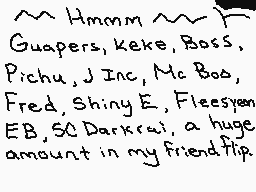 ~~ Hmmm ~~
Guapers, Keke, Boss,
Pichu, J Inc, Mc Boo,
Fred, Shiny E, Fleesyem
EB, SC Darkrai, a huge
amount in my friend flip.